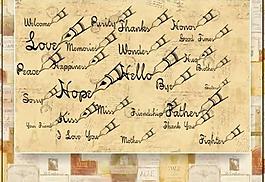 Welcome Purity Thanks Honor
Love Memories Wonder Good Times
Peace Happiness Hello Hug Brother
Sorry Hope Bye
Kiss Miss Friendship Father
Your Friend I Love You Mother Thank You Fighter